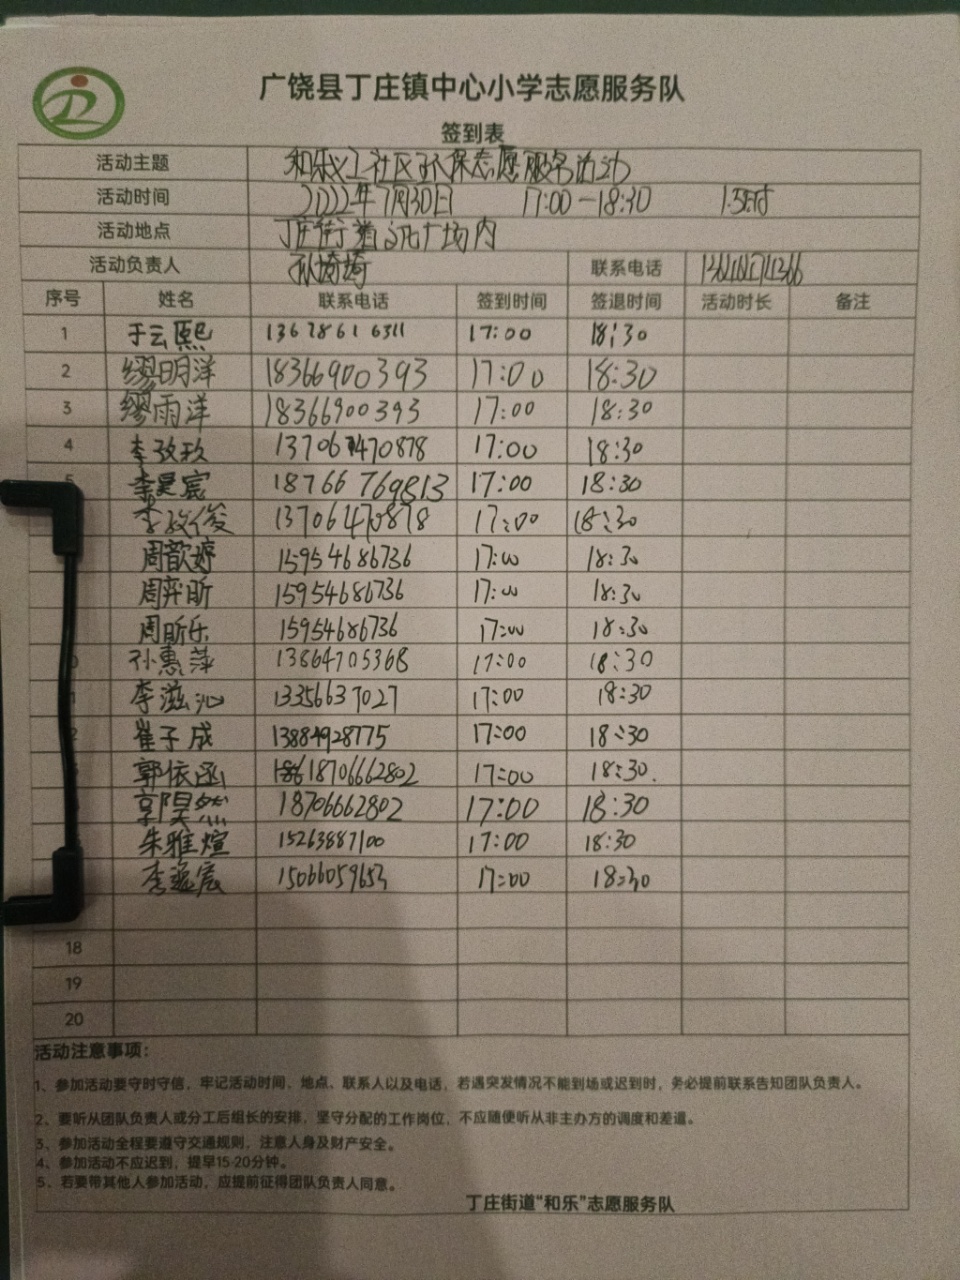 广饶县丁庄镇中心小学志愿服务队
签到表
活动主题 和乐义工社区环保志愿服务活动
活动时间 2022年7月30日 17:00-18:30 1.5时
活动地点 丁庄街道文化广场内
活动负责人 孙埼埼 联系电话
序号 姓名 联系电话 签到时间 签退时间 活动时长 备注
1 于云熙 13678616311 17:00 18:30
2 缪明洋 18366900393 17:00 18:30
3 缪雨洋 18366900393 17:00 18:30
4 李孜玖 13706470878 17:00 18:30
5 李昊宸 18766769813 17:00 18:30
李孜俊 13706470878 17:00 18:30
周歆婷 15954686736 17:00 18:30
周弈昕 15954686736 17:00 18:30
周昕乐 15954686736 17:00 18:30
0 孙惠萍 13864705368 17:00 18:30
1 李滋沁 13356637027 17:00 18:30
2 崔子成 13884928775 17:00 18:30
郭依函 18706662802 17:00 18:30.
郭昊然 18706662802 17:00 18:30
朱雅煊 15263887100 17:00 18:30
李逸宸 15066059653 17:00 18:30
18
19
20
活动注意事项：
1、参加活动要守时守信，牢记活动时间、地点、联系人以及电话，若遇突发情况不能到场或迟到时，务必提前联系告知团队负责人。
2、要听从团队负责人或分工后组长的安排，坚守分配的工作岗位，不应随便听从非主办方的调度和差遣。
3、参加活动全程要遵守交通规则，注意人身及财产安全。
4、参加活动不应迟到，提早15-20分钟。
5、若要带其他人参加活动，应提前征得团队负责人同意。
丁庄街道“和乐”志愿服务队